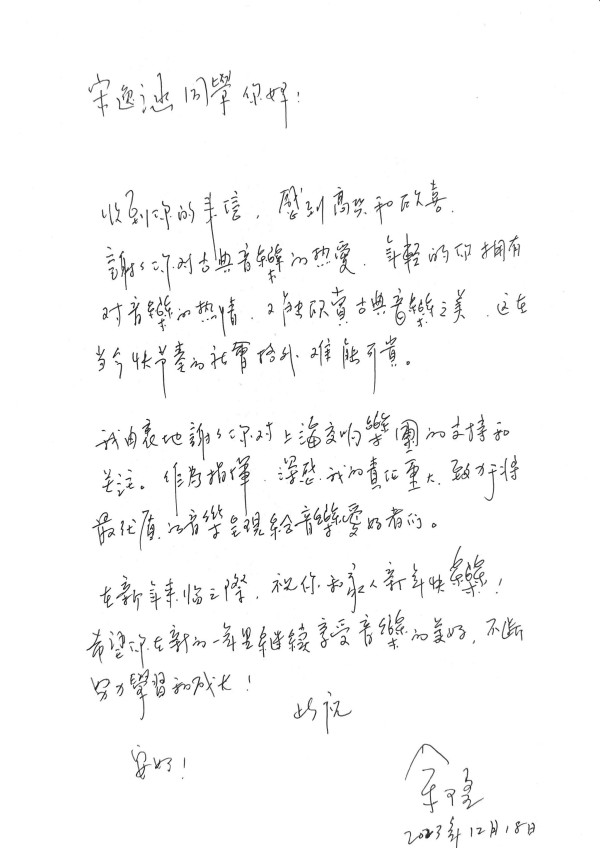 宋逸涵同學你好！
收到你的来信，感到高興和欣喜，
謝謝你对古典音樂的热爱，年輕的你拥有
对音樂的热情，又能欣賞古典音樂之美，这在
当今快节奏的社會格外难能可貴。
我由衷地謝謝你对上海交响樂團的支持和
关注。作为指揮，深感我的責任重大，致力于将
最优质的音樂呈現給音樂愛好者们。
在新年来临之際，祝你和家人新年快樂！
希望你在新的一年里継续享受音樂的美好，不断
努力學習和成长！
此祝
安好！
余隆
2023年12月18日